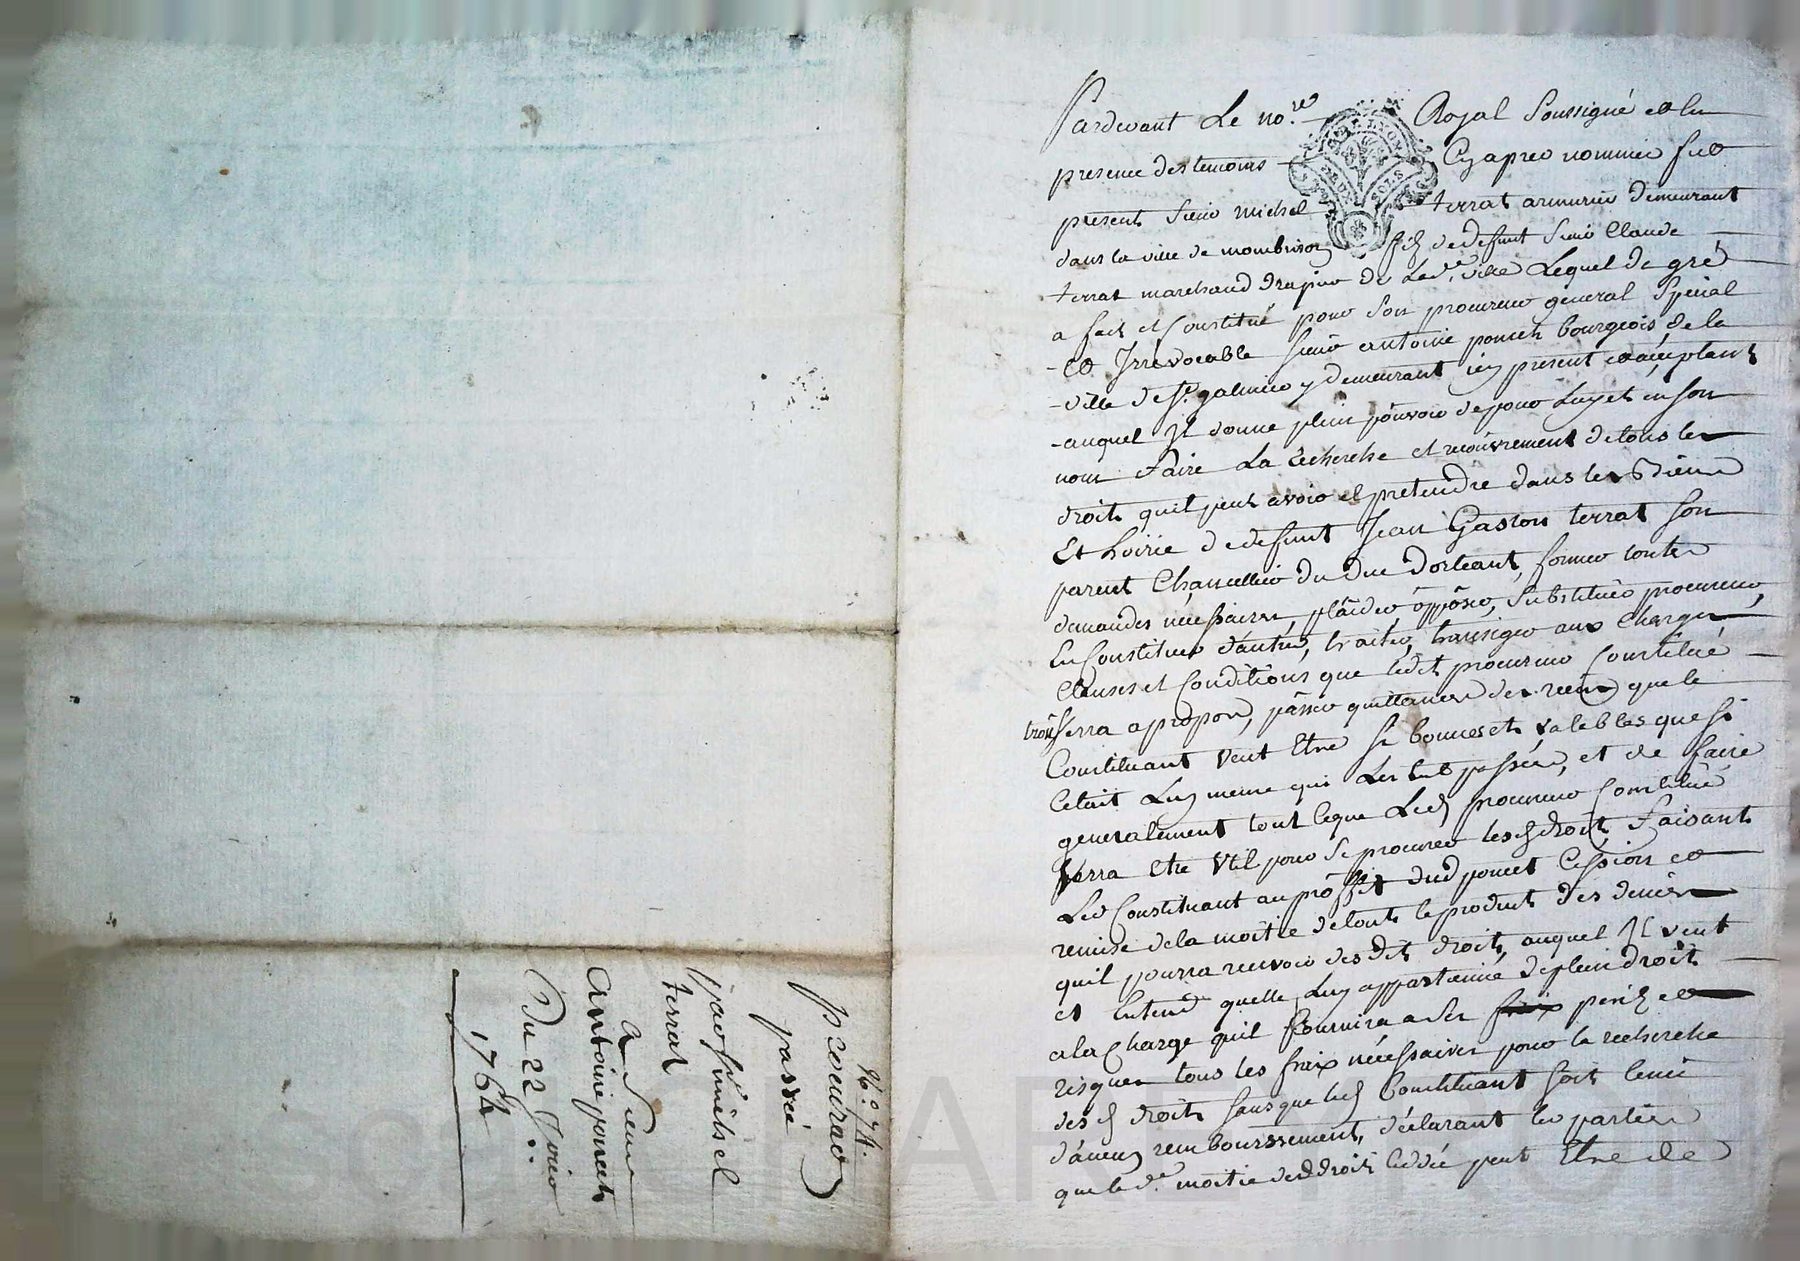 Pardevant Le no.re Royal Soussigné et en
presence des temoins Cy apres nommés fut
present Sieur michel terrat armurier demeurant
dans la ville de montbrison fils de defunt Sieur Claude
terrat marchand drapier de Lad.e ville Lequel de gré
a fait et Constitué pour Son procureur general Special
et Irrevocable Sieur antoine poncet bourgeois de la
ville de St. galmier y demeurant icy present et acceptant
auquel Il donne plein pouvoir de pour Luy et en son
nom faire La recherche et recouvrement de tous les
droits quil peut avoir et pretendre dans les Biens
Et hoirie de defunt Jean Gaston terrat son
parent Chancellier du Duc Dorleant, former toutes
demandes necessaires, plaider opposer, Substituer procureur,
En Constituer d'autres, traiter, transiger aux Charges
Clauses et Conditions que ledit procureur Constitué
trouverra a propos, passer quittances des recus que le
Constituant veut Etre Si bonnes et valables que si
Cetait Luy meme qui Les eut passées, et de faire
generalement tout Ceque Led procureur Constitué
verra Etre Util pour Se procurer lesd droits, Faisant
Led Constituant au proffit dud poncet Cession et
remise de la moitié de tout le produit des deniers
quil pourra recevoir desdits droits, auquel Il veut
et Entend quelle Luy appartienne de plein droit
a la Charge quil fournira a ses perils et
risques tous les fraix necessaires pour la recherche
desd droits sans que led Constituant soit tenu
d'aucun remboursement, declarant les parties
que lad.e moitié desd droits cedée peut Etre de
N.o 74.
procuraon
passée
par Sr michel
terrat
a Sieur
Antoine poncet
Du 22
1764
SOLS